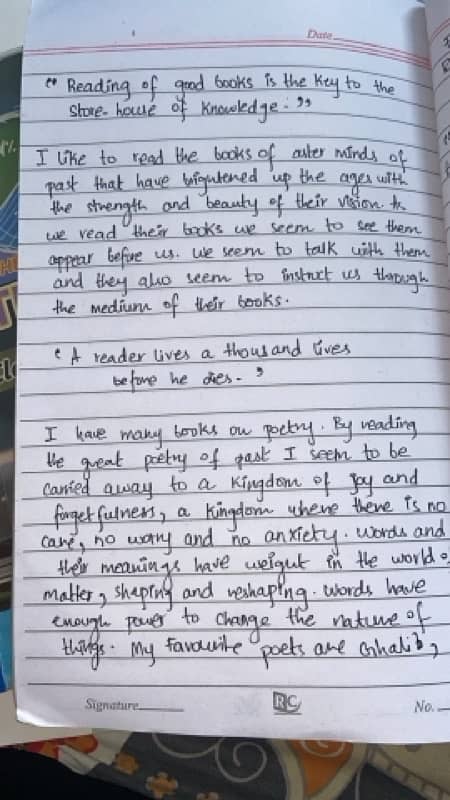 Date
“ Reading of good books is the key to the
store-house of knowledge. ”
I like to read the books of aster minds of
past that have brightened up the ages with
the strength and beauty of their vision
we read their books we seem to see them
appear before us. we seem to talk with them
and they also seem to instruct us through
the medium of their books.
‘ A reader lives a thousand lives
before he dies. ’
I have many books on poetry. By reading
the great poetry of past I seem to be
carried away to a kingdom of joy and
forgetfulness, a kingdom where there is no
care, no worry and no anxiety. words and
their meanings have weight in the world
matter, shaping and reshaping. words have
enough power to change the nature of
things. My favourite poets are Ghalib,
Signature
RC
No.